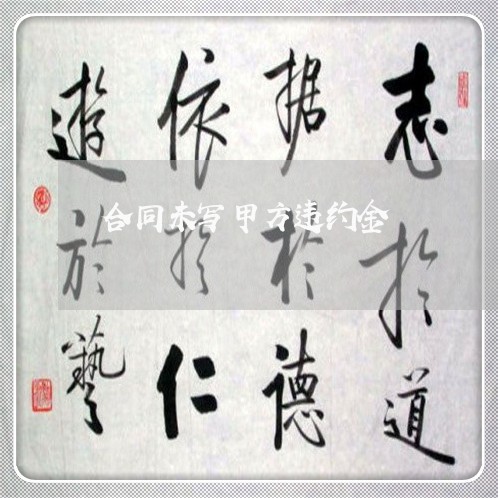 志於道
据於德
依於仁
遊於藝
合同未写甲方违约金